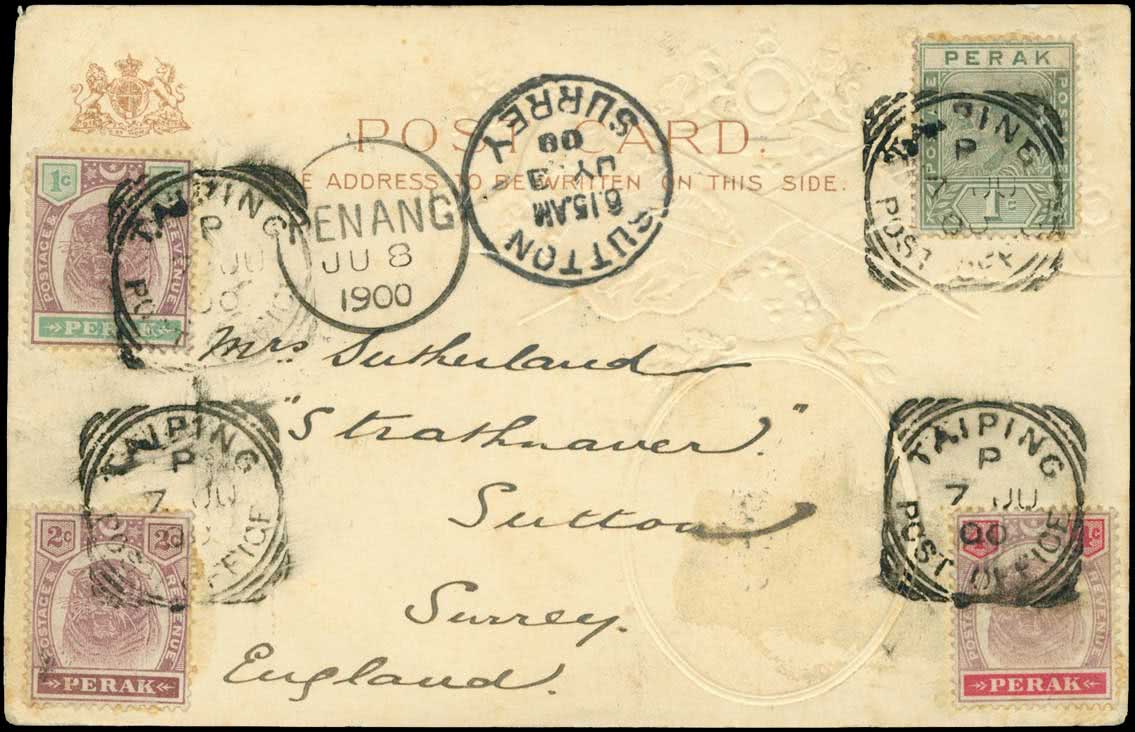 POST CARD.
THE ADDRESS TO BE WRITTEN ON THIS SIDE.
PERAK
POSTAGE
1c
TAIPING
P
7 JU
POST OFFICE
1c
POSTAGE & REVENUE
PERAK
TAIPING
P
JU
00
POST OFFICE
PENANG
JU 8
1900
SUTTON
6 15 AM
JY 3
00
SURREY
Mrs Sutherland
"Strathnaver"
Sutton
Surrey.
England.
TAIPING
P
7 JU
POST OFFICE
2c 2c
POSTAGE & REVENUE
PERAK
TAIPING
P
7 JU
00
POST OFFICE
POSTAGE & REVENUE
PERAK